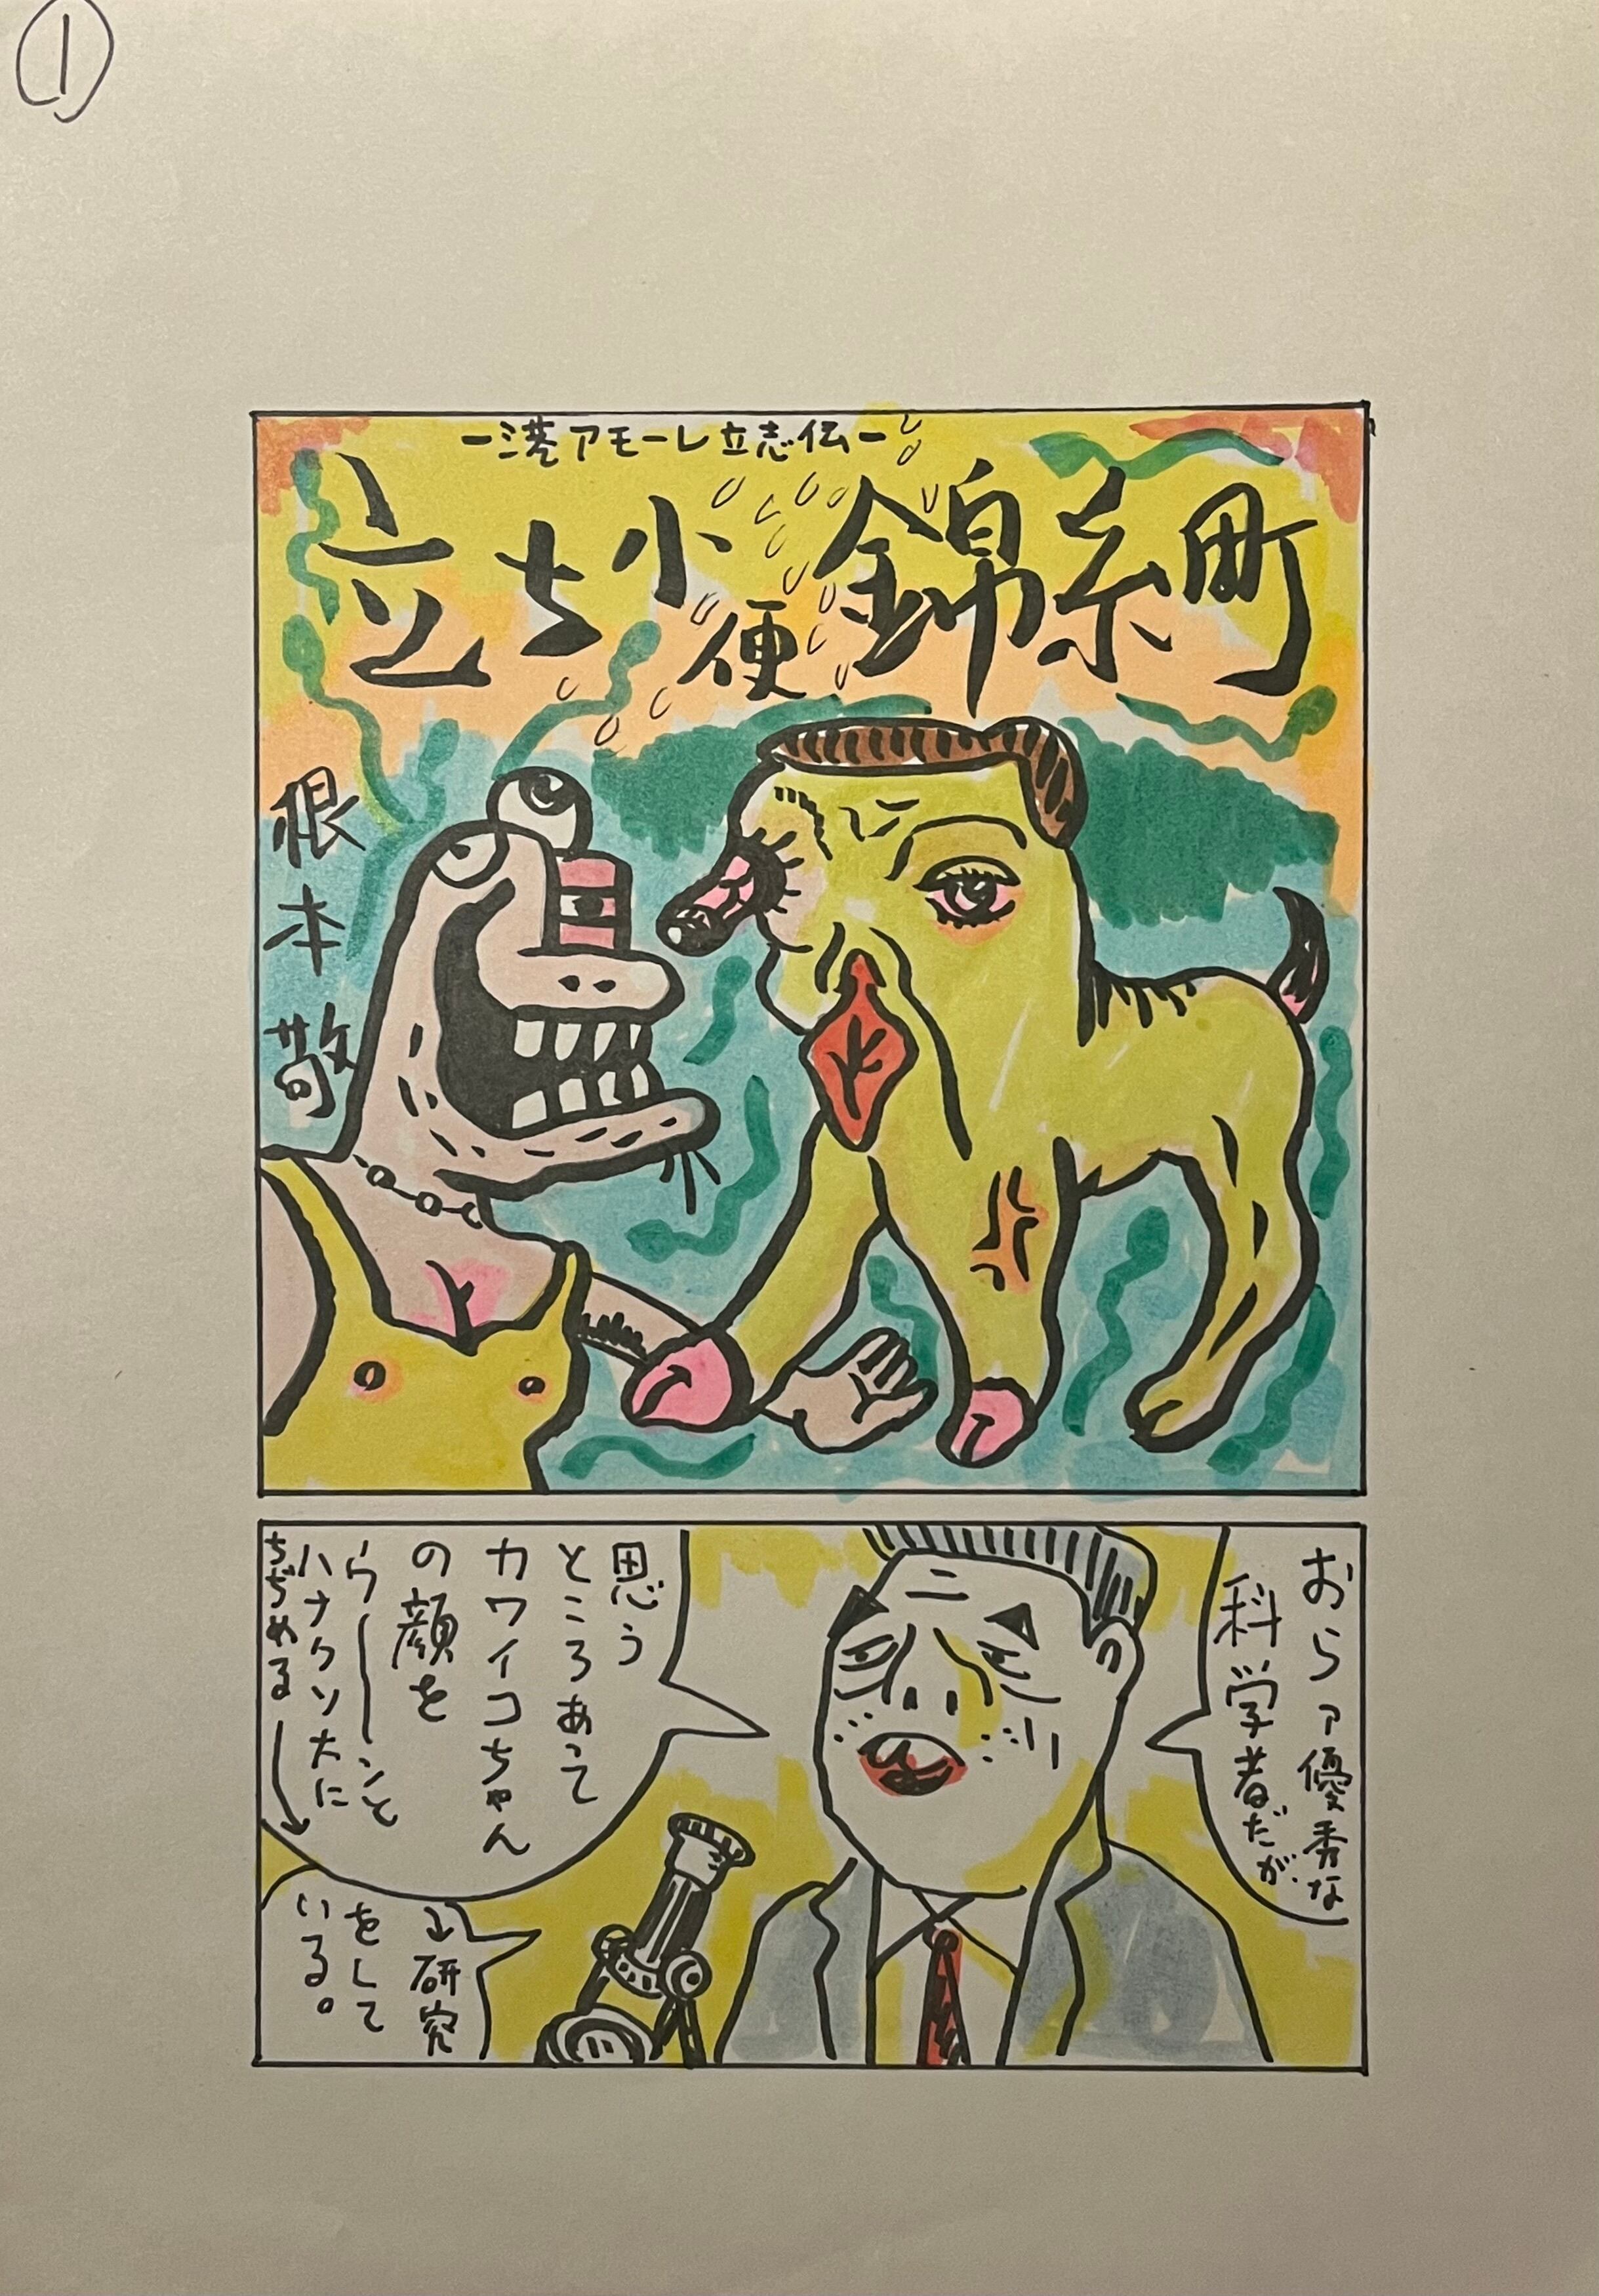 ①
ー港アモーレ立志伝ー
立ち小便錦糸町
根本敬
おらァ優秀な
科学者だが、
思う
ところあって
カワイコちゃん
の顔を
うーーンと
ハナクソ大に
ちぢめる→
↓研究
をして
いる。